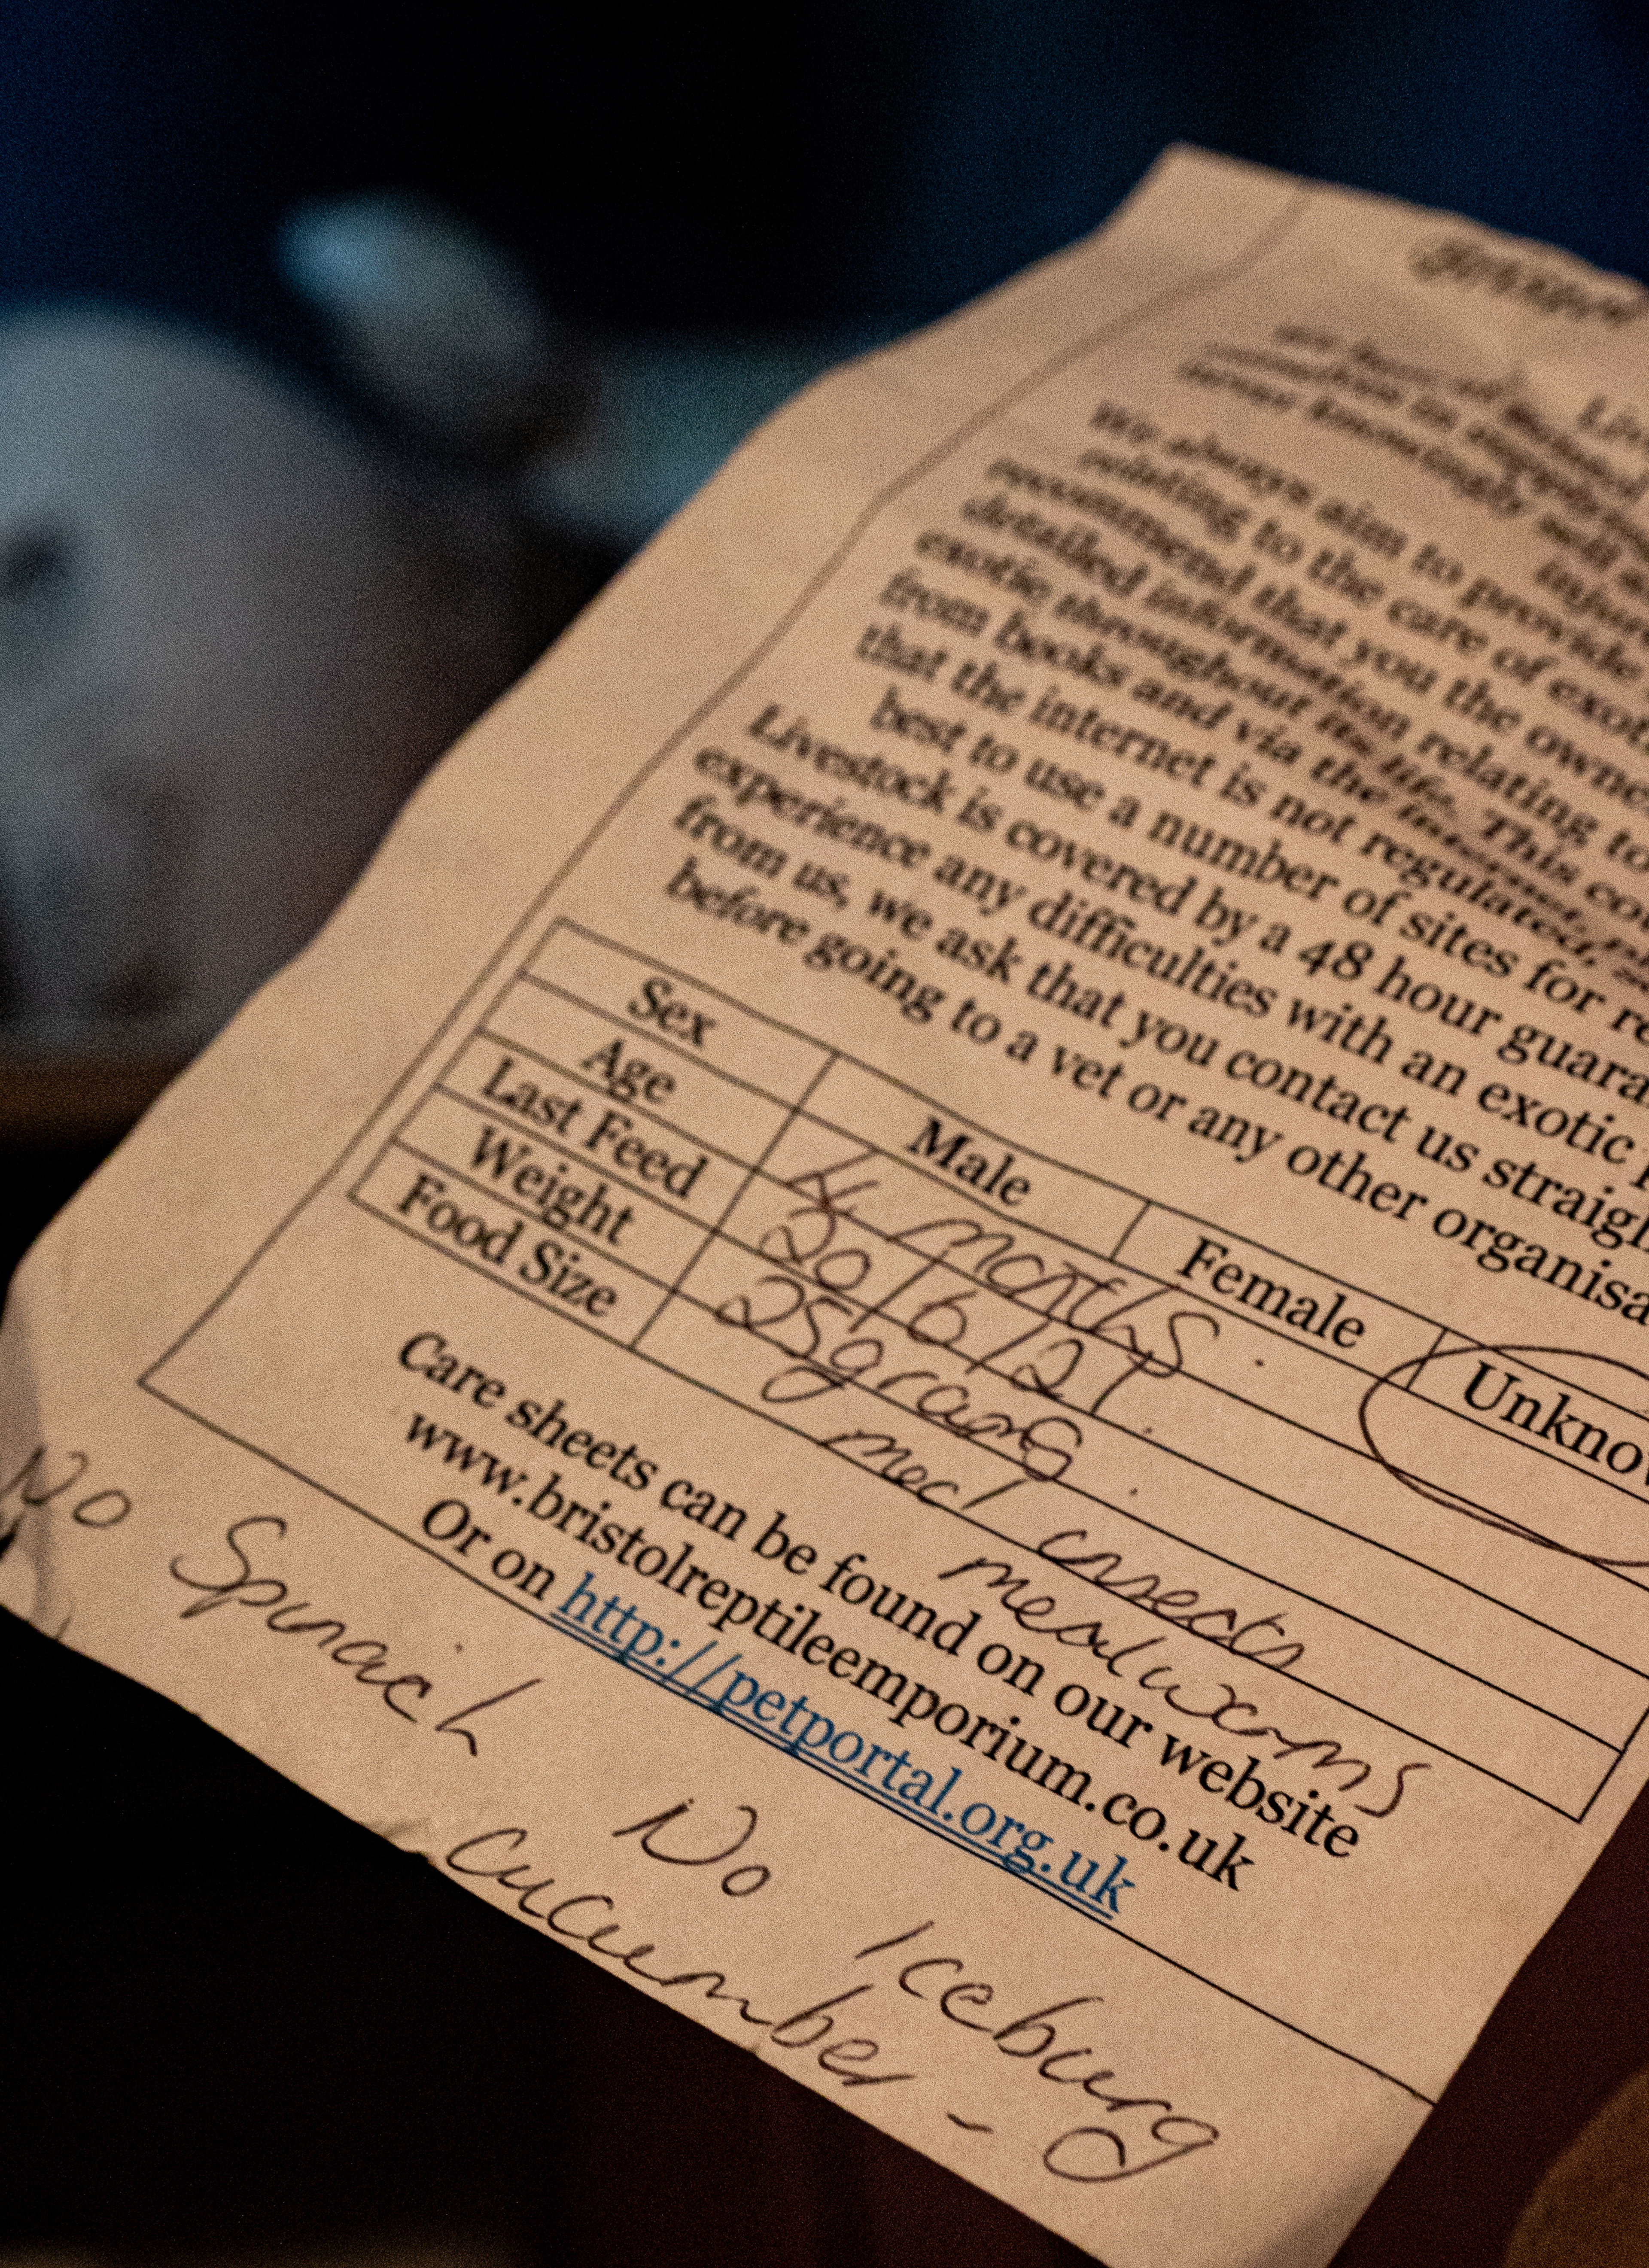 We always aim to provide
relating to the care of exot
recommend that you the owne
detailed information relating to
exotic throughout its life. This co
from books and via the internet,
that the internet is not regulated,
best to use a number of sites for re
Livestock is covered by a 48 hour guara
experience any difficulties with an exotic p
from us, we ask that you contact us straigh
before going to a vet or any other organisa
Sex Male Female Unknow
Age 4 months.
Last Feed 20/6/21.
Weight 25grams.
Food Size med insects
mealworms
Care sheets can be found on our website
www.bristolreptileemporium.co.uk
Or on http://petportal.org.uk
No Spinach No Iceburg
cucumber -